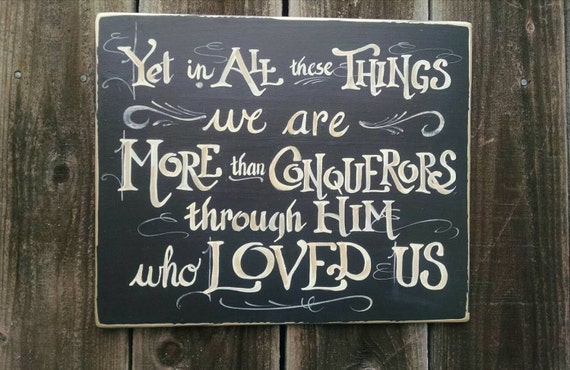 Yet in ALL these THINGS
we are
MORE than CONQUERORS
through HIM
who LOVED US